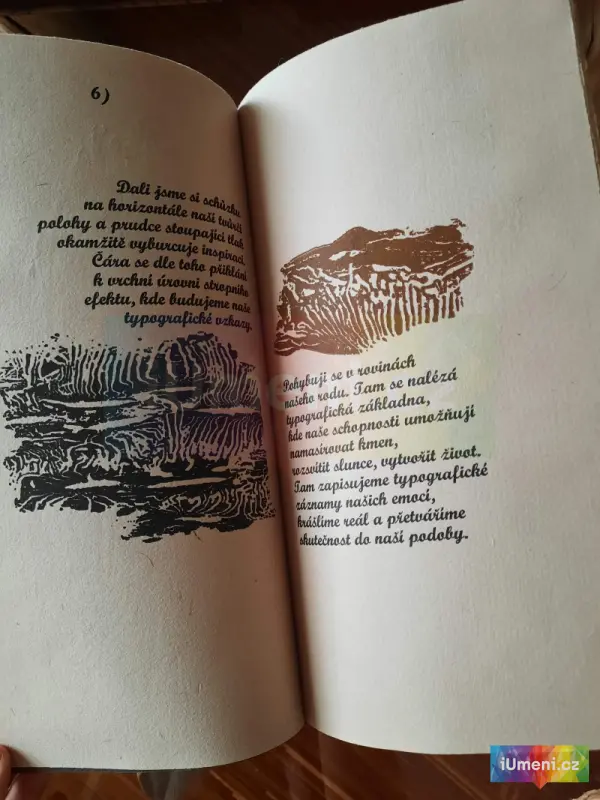 6)
Dali jsme si schůzku
na horizontále naší tvůrčí
polohy a prudce stoupající tlak
okamžitě vyburcuje inspiraci.
Čára se dle toho přiklání
k vrchní úrovni stropního
efektu, kde budujeme naše
typografické vzkazy.
Pohybuji se v rovinách
našeho rodu. Tam se nalézá
typografická základna,
kde naše schopnosti umožňují
namasírovat kmen,
rozsvítit slunce, vytvořit život.
Tam zapisujeme typografické
záznamy našich emocí,
krášlíme reál a přetváříme
skutečnost do naší podoby.
iUmeni.cz